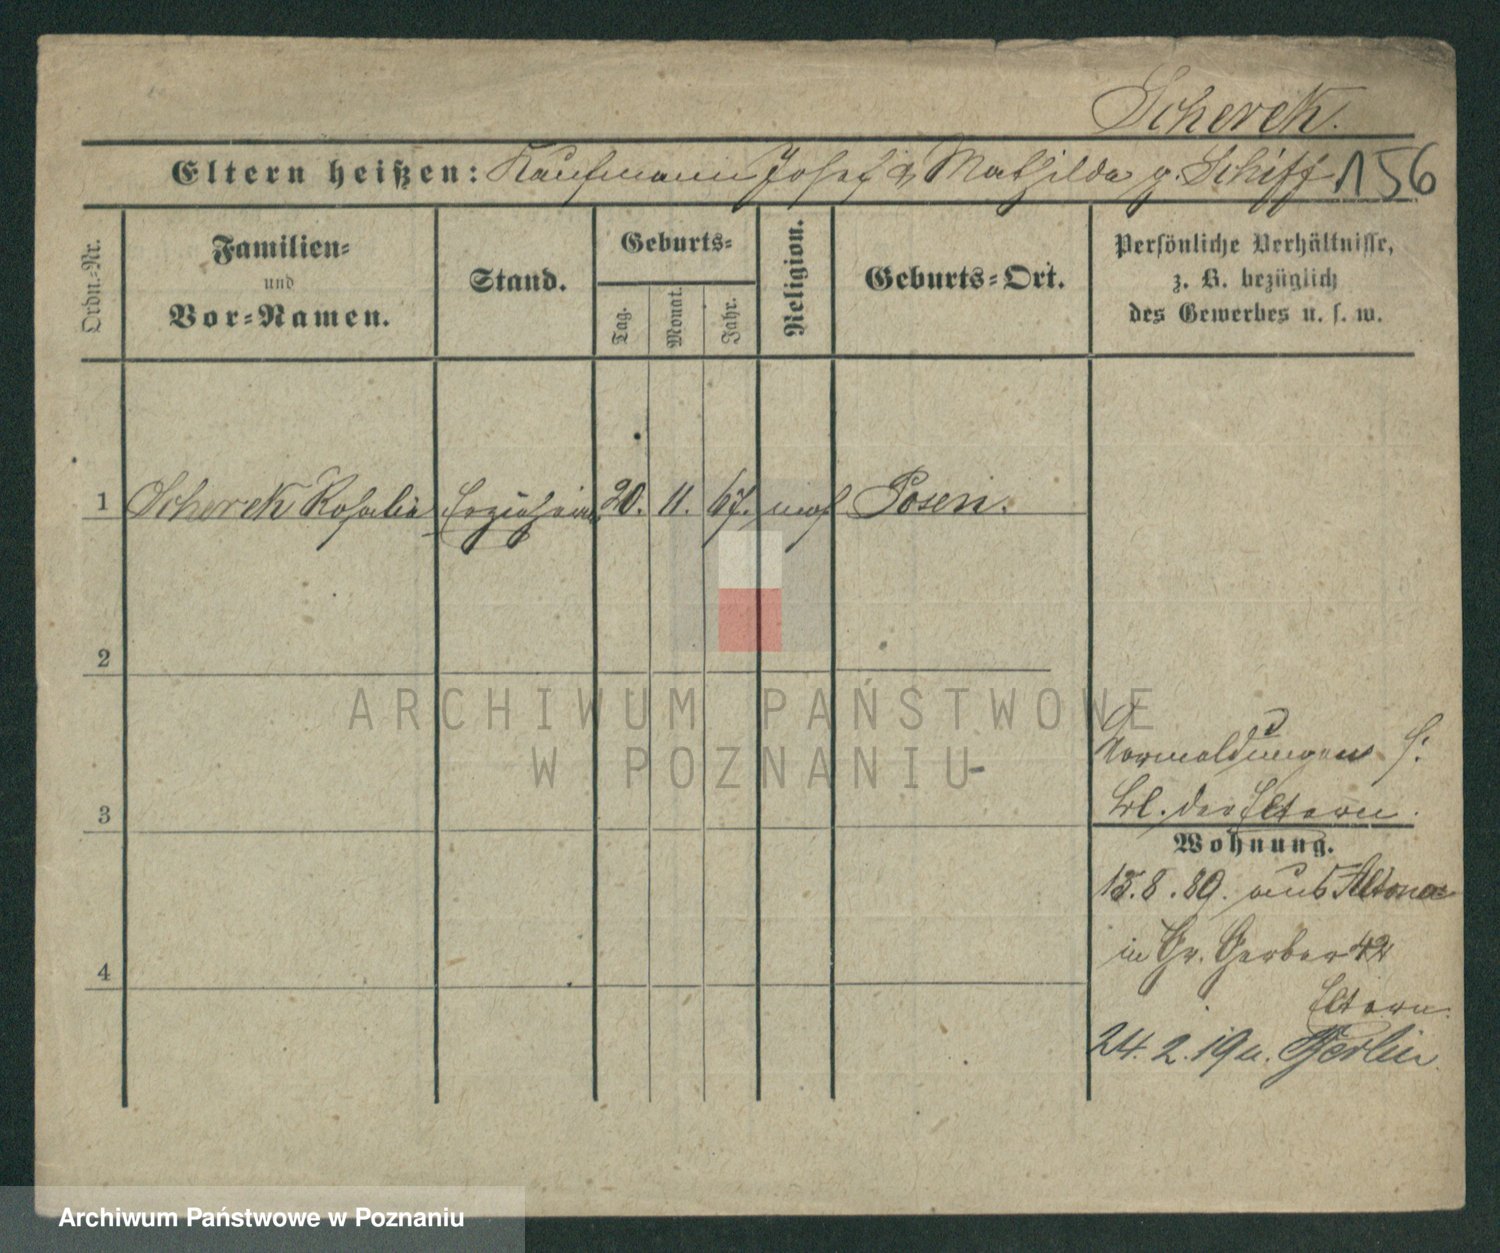 Scherek.
Eltern heißen: Kaufmann Josef & Mathilde g. Schiff 156
Ordn.-Nr.
Familien-
und
Vor-Namen.
Stand.
Geburts-
Tag.
Monat.
Jahr.
Religion.
Geburts-Ort.
Persönliche Verhältnisse,
z. B. bezüglich
des Gewerbes u. s. w.
1 Scherek Rosalie Erzieherin 20. 11. 67. mos Posen.
2
ARCHIWUM PAŃSTWOWE
W POZNANIU
Vormeldungen s.
bl. der Eltern.
3
Wohnung.
15.8.89. aus Altona
in Gr. Gerber 42
4
Eltern.
24.2.19 n. Berlin
Archiwum Państwowe w Poznaniu